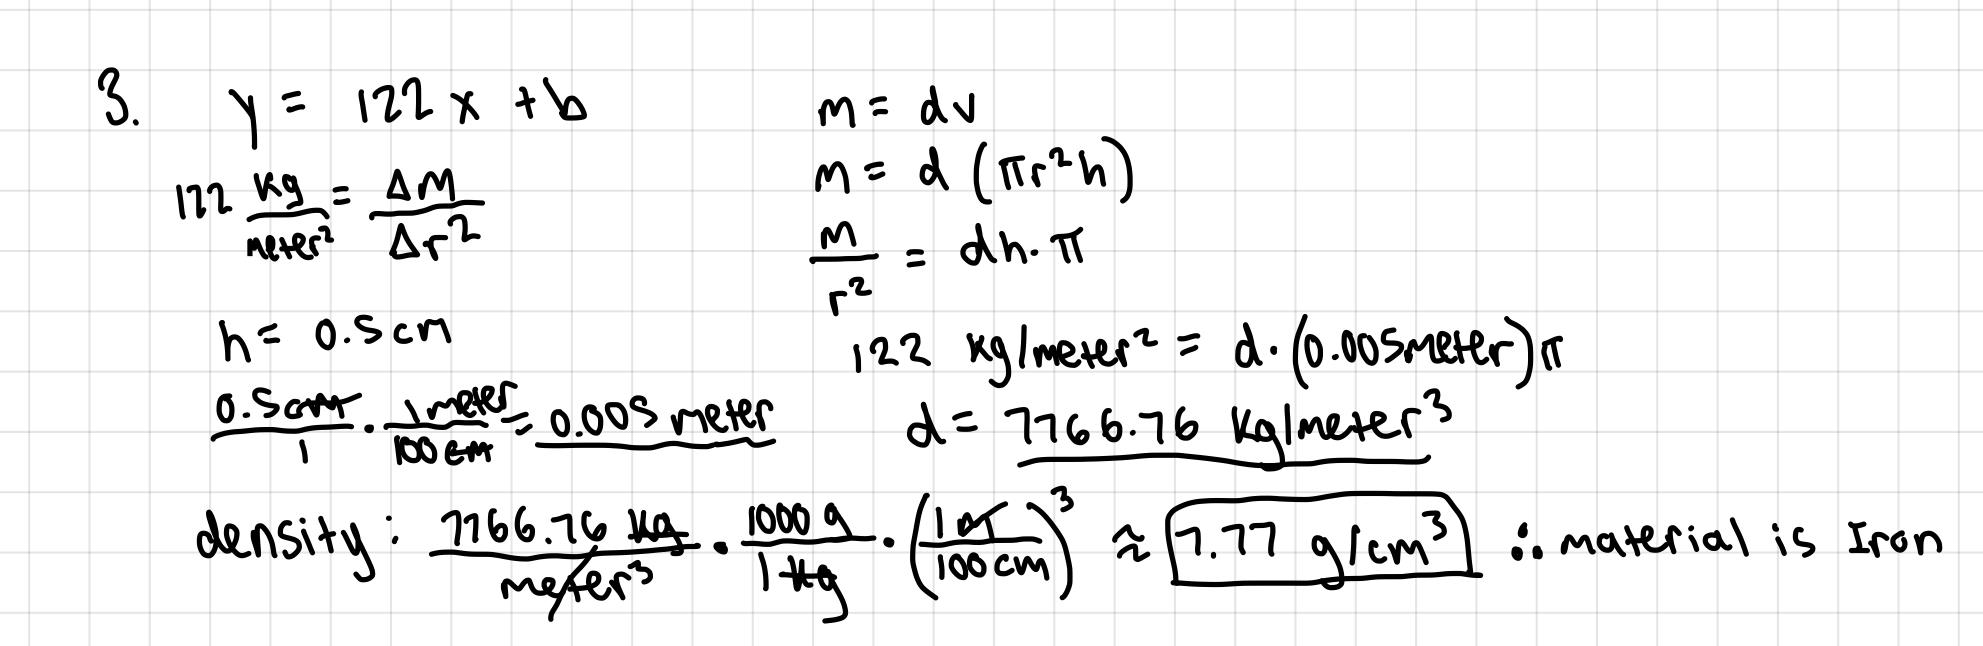 3. y = 122 x + b
122 kg/meter² = ΔM/Δr²
h = 0.5 cm
0.5cm/1 · 1 meter/100 cm = 0.005 meter
m = dv
m = d (πr²h)
m/r² = dh·π
122 kg/meter² = d·(0.005meter)π
d = 7766.76 kg/meter³
density: 7766.76 kg/meter³ · 1000 g/1 kg · (1 m/100 cm)³ ≈ 7.77 g/cm³ ∴ material is Iron